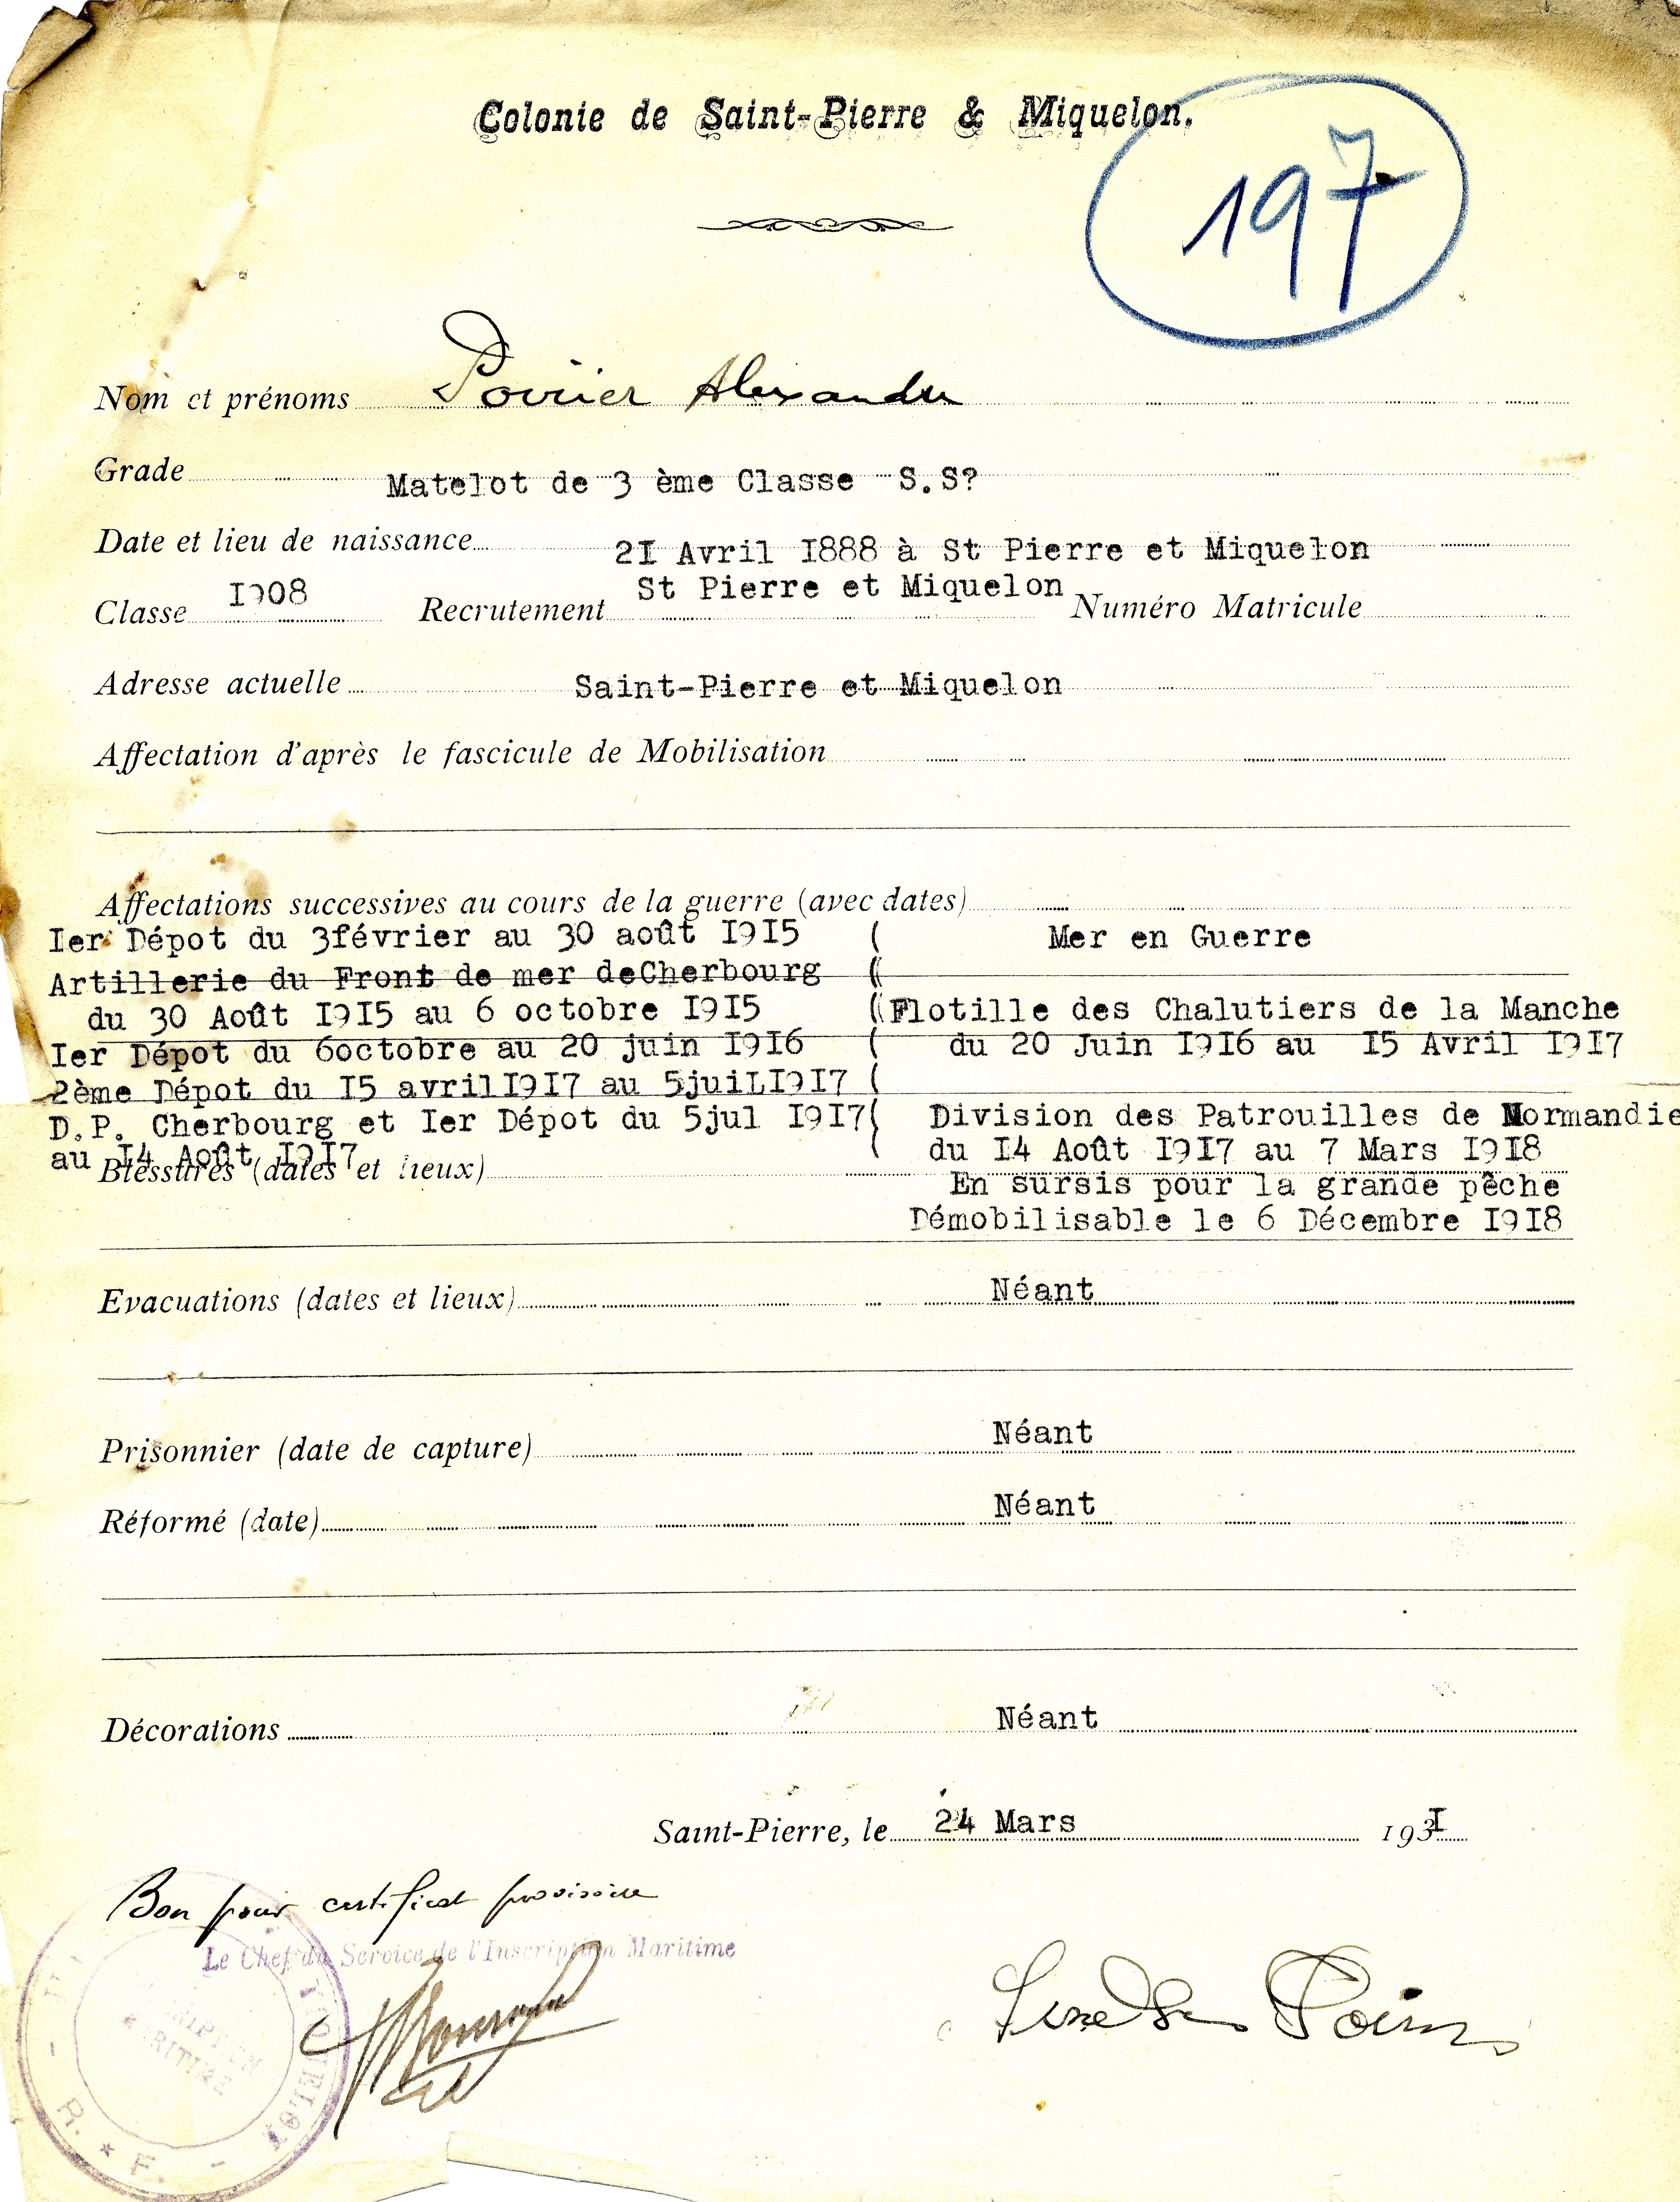 Colonie de Saint-Pierre & Miquelon.
197
Nom et prénoms Poirier Alexandre
Grade Matelot de 3 ème Classe S.S?
Date et lieu de naissance 2I Avril I888 à St Pierre et Miquelon
Classe I908 Recrutement St Pierre et Miquelon Numéro Matricule
Adresse actuelle Saint-Pierre et Miquelon
Affectation d'après le fascicule de Mobilisation
Affectations successives au cours de la guerre (avec dates)
Ier Dépot du 3février au 30 août I9I5 ( Mer en Guerre
Artillerie du Front de mer deCherbourg ((
du 30 Août I9I5 au 6 octobre I9I5 ((Flotille des Chalutiers de la Manche
Ier Dépot du 6octobre au 20 juin I9I6 ( du 20 Juin I9I6 au I5 Avril I9I7
2ème Dépot du I5 avrilI9I7 au 5juiLI9I7 (
D.P. Cherbourg et Ier Dépot du 5jul I9I7( Division des Patrouilles de Normandie
au I4 Août I9I7 ( du I4 Août I9I7 au 7 Mars I9I8
Blessures (dates et lieux) En sursis pour la grande pêche
Démobilisable le 6 Décembre I9I8
Evacuations (dates et lieux) Néant
Prisonnier (date de capture) Néant
Réformé (date) Néant
Décorations Néant
Saint-Pierre, le 24 Mars 193I
Bon pour certificat provisoire
Le Chef du Service de l'Inscription Maritime
R. * F.